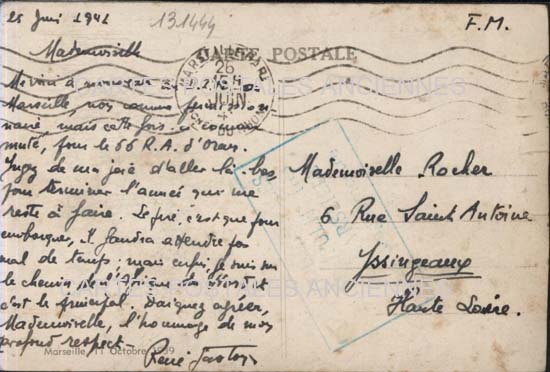 25 Juin 1941
131444
F.M.
CARTE POSTALE
Mademoiselle
Me voici à nouveau
Marseille, non comme
naire, mais cette fois-ci
muté, pour le 66 R.A. d'Oran.
Jugez de ma joie d'aller là-bas
pour terminer l'année qui me
reste à faire. Le pire, c'est que pour
embarquer, il faudra attendre pas
mal de temps; mais enfin, je suis sur
le chemin de l'
c'est le principal. Daignez agréer,
Mademoiselle, l'hommage de mon
profond respect.
René
Marseille, 11 Octobre 1939
MARSEILLE GARE
26
JUIN
BCHES DU RHONE
Mademoiselle Rocher
6 Rue Saint Antoine
Yssingeaux
Haute Loire.
CARTES POSTALES ANCIENNES
CARTES POSTALES ANCIENNES